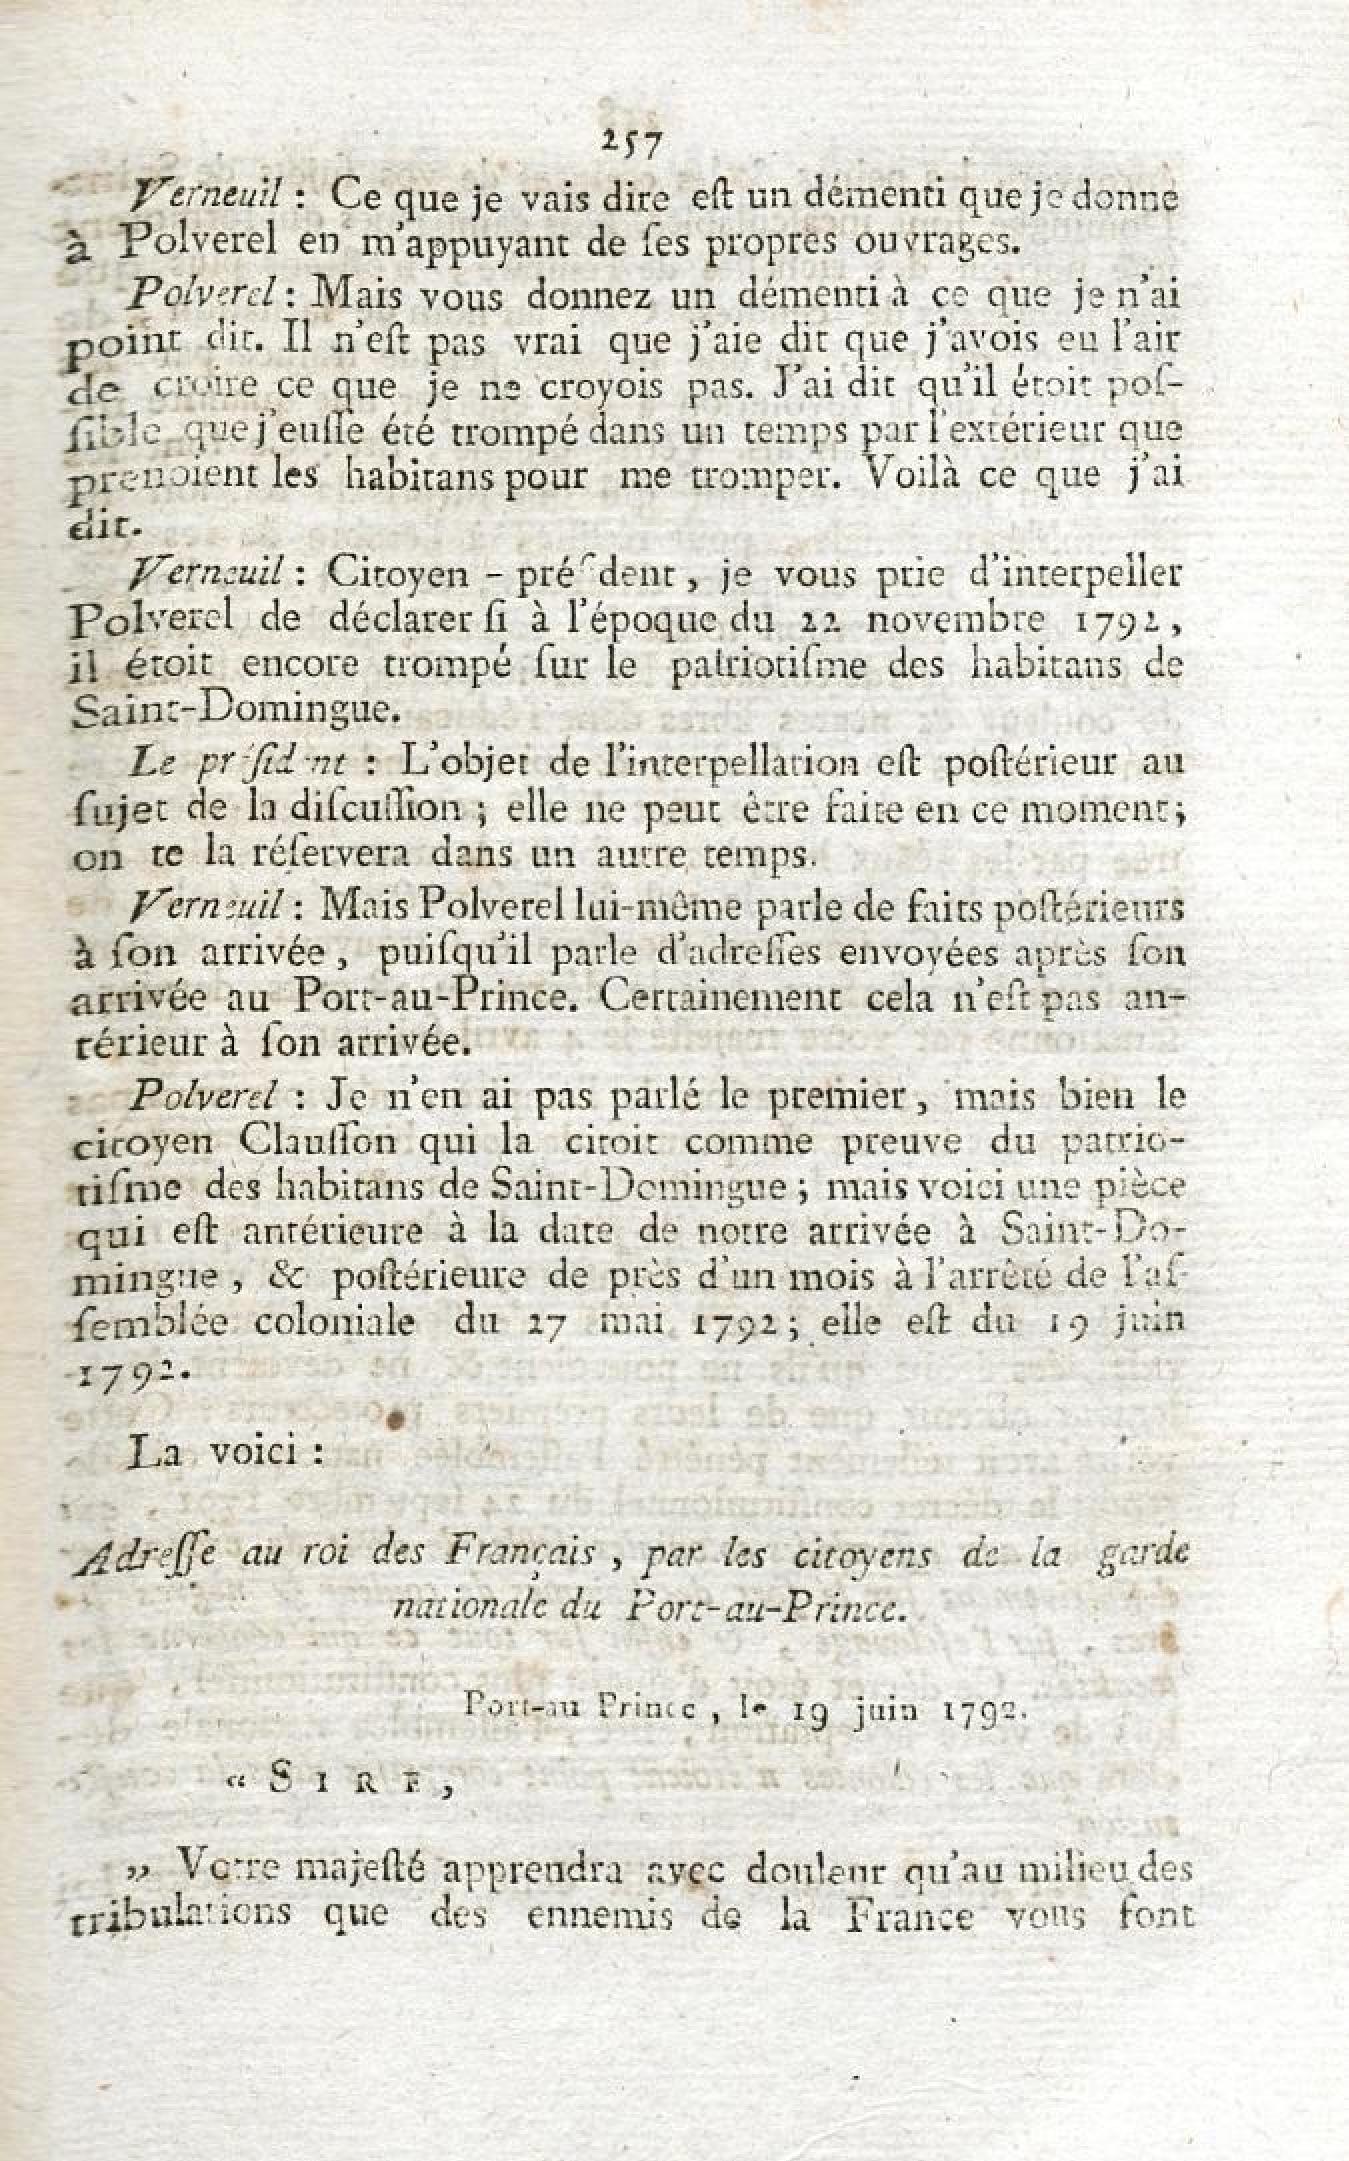 257
Verneuil : Ce que je vais dire eſt un démenti que je donne
à Polverel en m'appuyant de ſes propres ouvrages.
Polverel : Mais vous donnez un démenti à ce que je n'ai
point dit. Il n'eſt pas vrai que j'aie dit que j'avois eu l'air
de croire ce que je ne croyois pas. J'ai dit qu'il étoit poſ-
ſible que j'euſſe été trompé dans un temps par l'extérieur que
prenoient les habitans pour me tromper. Voilà ce que j'ai
dit.
Verneuil : Citoyen - préſident, je vous prie d'interpeller
Polverel de déclarer ſi à l'époque du 22 novembre 1792,
il étoit encore trompé ſur le patriotiſme des habitans de
Saint-Domingue.
Le préſident : L'objet de l'interpellation eſt poſtérieur au
ſujet de la diſcuſſion ; elle ne peut être faite en ce moment ;
on te la réſervera dans un autre temps.
Verneuil : Mais Polverel lui-même parle de faits poſtérieurs
à ſon arrivée, puiſqu'il parle d'adreſſes envoyées après ſon
arrivée au Port-au-Prince. Certainement cela n'eſt pas an-
térieur à ſon arrivée.
Polverel : Je n'en ai pas parlé le premier, mais bien le
citoyen Clauſſon qui la citoit comme preuve du patrio-
tiſme des habitans de Saint-Domingue ; mais voici une pièce
qui eſt antérieure à la date de notre arrivée à Saint-Do-
mingue, & poſtérieure de près d'un mois à l'arrêté de l'aſ-
ſemblée coloniale du 27 mai 1792 ; elle eſt du 19 juin
1792.
La voici :
Adreſſe au roi des Français, par les citoyens de la garde
nationale du Port-au-Prince.
Port-au Prince, le 19 juin 1792.
« SIRE,
» Votre majeſté apprendra avec douleur qu'au milieu des
tribulations que des ennemis de la France vous font